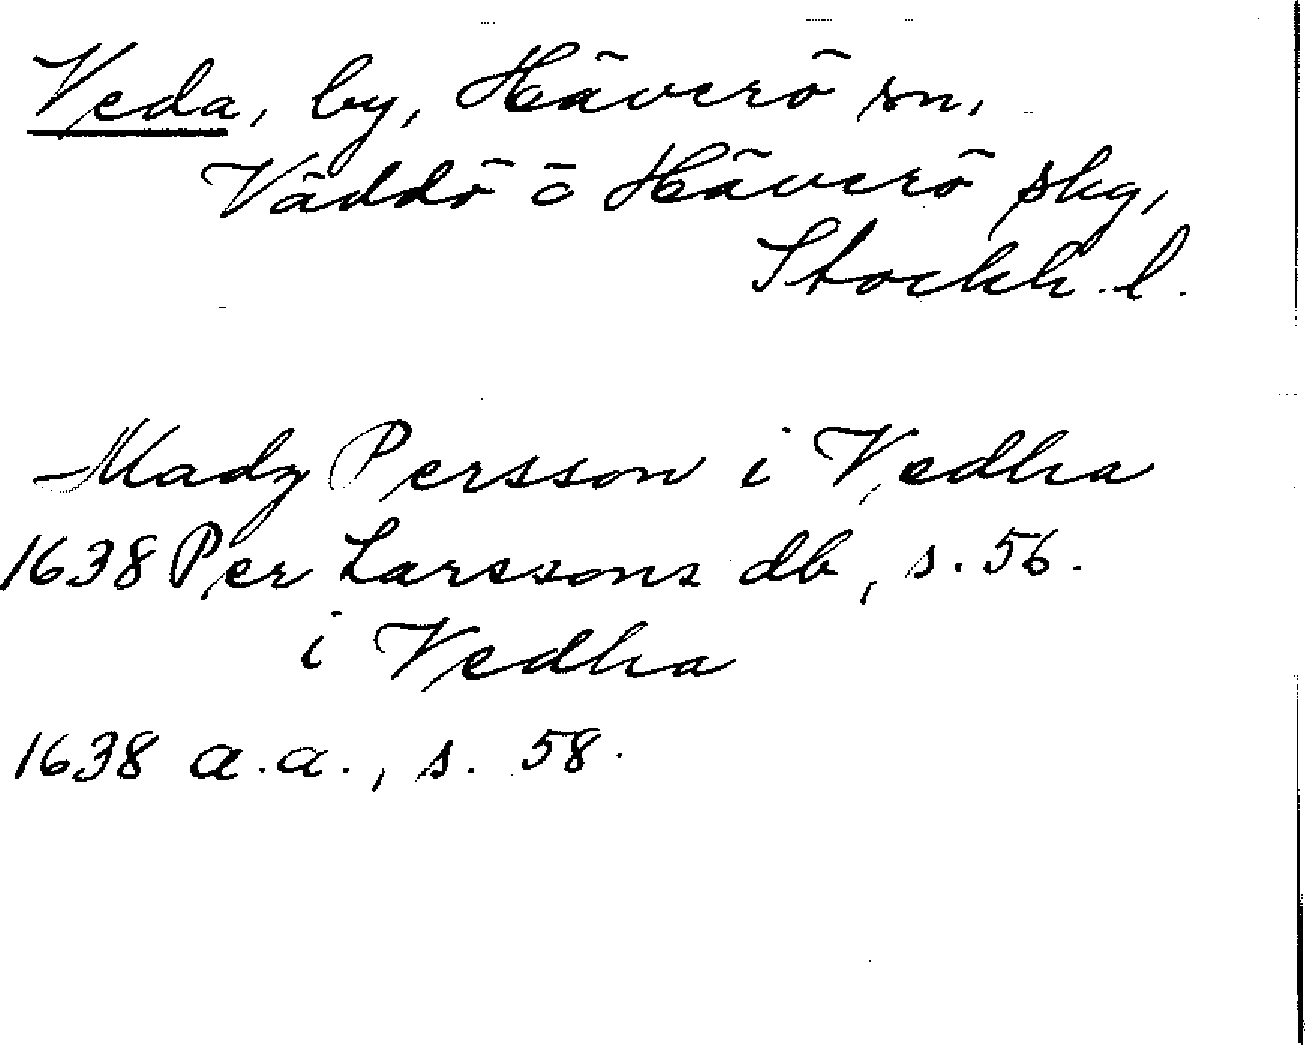 Veda, by, Häverö sn,
Väddö o Häverö skg,
Stockh. l.
Madz Persson i Vedha
1638 Per Larssons db, s. 56.
i Vedha
1638 a.a., s. 58.